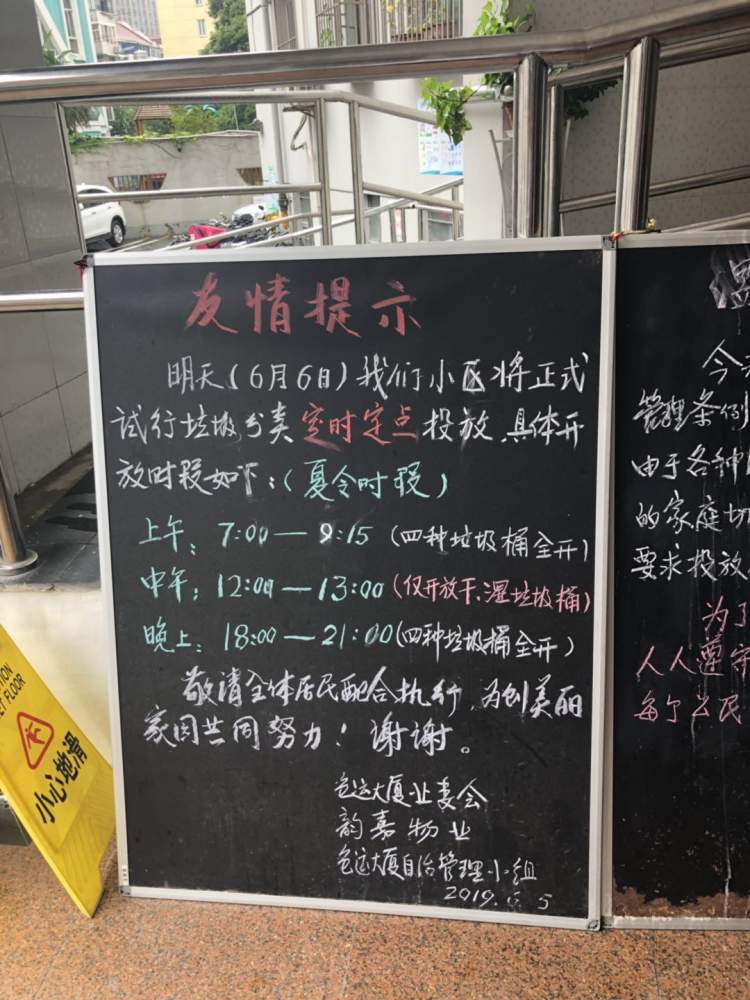 友情提示
明天(6月6日)我们小区将正式
试行垃圾分类定时定点投放,具体开
放时段如下:(夏令时段)
上午:7:00—9:15(四种垃圾桶全开)
中午:12:00—13:00(仅开放干、湿垃圾桶)
晚上:18:00—21:00(四种垃圾桶全开)
敬请全体居民配合执行,为创美丽
家园共同努力!谢谢。
大厦业委会
韵嘉物业
大厦自治管理小组
2019. 5
今
管理条例
由于各种
的家庭切
要求投放
为了
人人遵守
每个公民
FLOOR
小心地滑